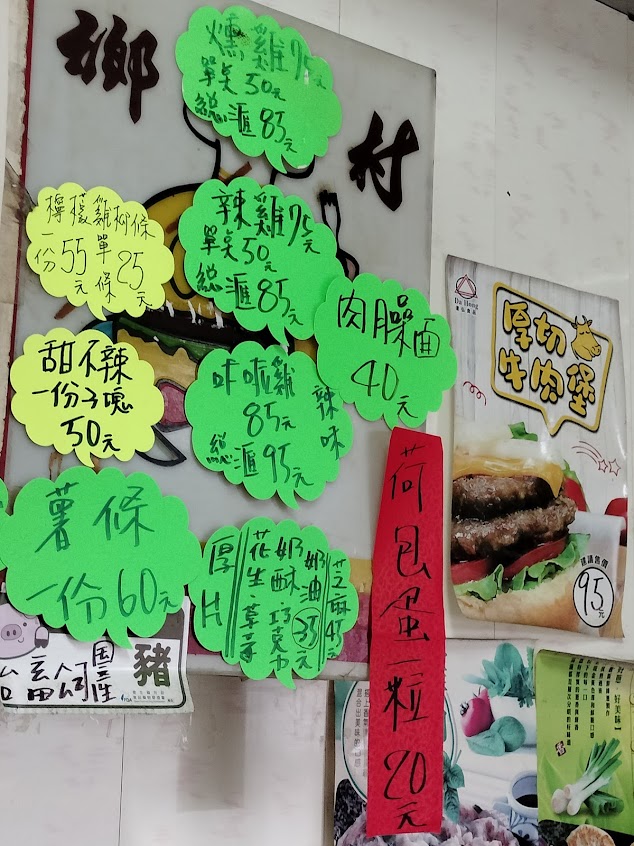 鄉村
燻雞75元
單點50元
總滙85元
辣雞75元
單點50元
總滙85元
檸檬雞柳條
一份55元
單條25元
肉臊面
40元
甜不辣
一份子塊
50元
咔呱雞
85元
總滙95元
辣味
薯條
一份60元
厚片
花生、草莓
奶酥、巧克力
奶油
35元
芝麻45元
荷包蛋一粒20元
Da Hong
厚切
牛肉堡
建議售價
95元
國產
豬
台畜公司
好美味